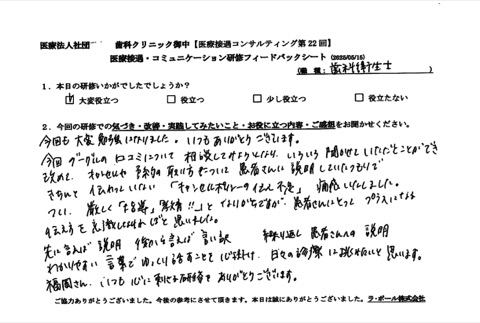 医療法人社団 歯科クリニック御中【医療接遇コンサルティング第22回】
医療接遇・コミュニケーション研修フィードバックシート(2025/05/15)
(職種:歯科衛生士)
1.本日の研修いかがでしたでしょうか?
☑大変役立つ □役立つ □少し役立つ □役立たない
2.今回の研修での気づき・改善・実践してみたいこと・お役に立つ内容・ご感想をお聞かせください。
今回も大変勉強になりました。いつもありがとうございます。
今回グーグルの口コミについて相談してみようとなり、いろいろ聞かせていただくことができ
改めて、キャンセルや予約の取り方について患者さんに説明していたつもりで
きちんと伝わっていない「キャンセルポリシーの伝え不足」痛感いたしました。
つい、厳しく「指導」「教育!!」となりがちですが、患者さんにとってプラスになる
伝え方を意識しなければと思いました。
先に言えば説明 後から言えば言い訳 繰り返し患者さんへの説明
わかりやすい言葉でゆっくり話すことを心掛け、日々の診療に挑みたいと思います。
福岡さん、いつも心に刺さる研修をありがとうございます。
ご協力ありがとうございました。今後の参考にさせて頂きます。本日は誠にありがとうございました。 ラ・ポール株式会社